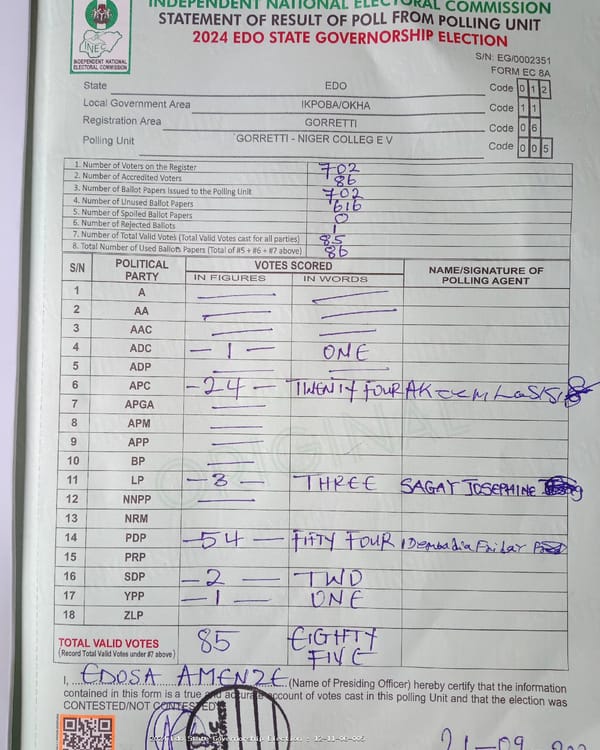 INDEPENDENT NATIONAL ELECTORAL COMMISSION
STATEMENT OF RESULT OF POLL FROM POLLING UNIT
2024 EDO STATE GOVERNORSHIP ELECTION
INEC
INDEPENDENT NATIONAL
ELECTORAL COMMISSION
S/N: EG/0002351
FORM EC 8A
State EDO Code 0 1 2
Local Government Area IKPOBA/OKHA Code 1 1
Registration Area GORRETTI Code 0 6
Polling Unit GORRETTI - NIGER COLLEG E V Code 0 0 5
1. Number of Voters on the Register 702
2. Number of Accredited Voters 86
3. Number of Ballot Papers Issued to the Polling Unit 702
4. Number of Unused Ballot Papers 616
5. Number of Spoiled Ballot Papers 0
6. Number of Rejected Ballots 1
7. Number of Total Valid Votes (Total Valid Votes cast for all parties) 85
8. Total Number of Used Ballots Papers (Total of #5 + #6 + #7 above) 86
S/N POLITICAL PARTY VOTES SCORED NAME/SIGNATURE OF POLLING AGENT
IN FIGURES IN WORDS
1 A
2 AA
3 AAC
4 ADC - 1 - ONE
5 ADP
6 APC - 24 - TWENTY FOUR
7 APGA
8 APM
9 APP
10 BP
11 LP - 3 - THREE SAGAY JOSEPHINE
12 NNPP
13 NRM
14 PDP - 54 - FIFTY FOUR Friday
15 PRP
16 SDP - 2 - TWO
17 YPP - 1 - ONE
18 ZLP
TOTAL VALID VOTES 85 EIGHTY FIVE
(Record Total Valid Votes under #7 above)
I, EDOSA AMENZE (Name of Presiding Officer) hereby certify that the information
contained in this form is a true and accurate account of votes cast in this polling Unit and that the election was
CONTESTED/NOT CONTESTED
ORIGINAL
21-09-202